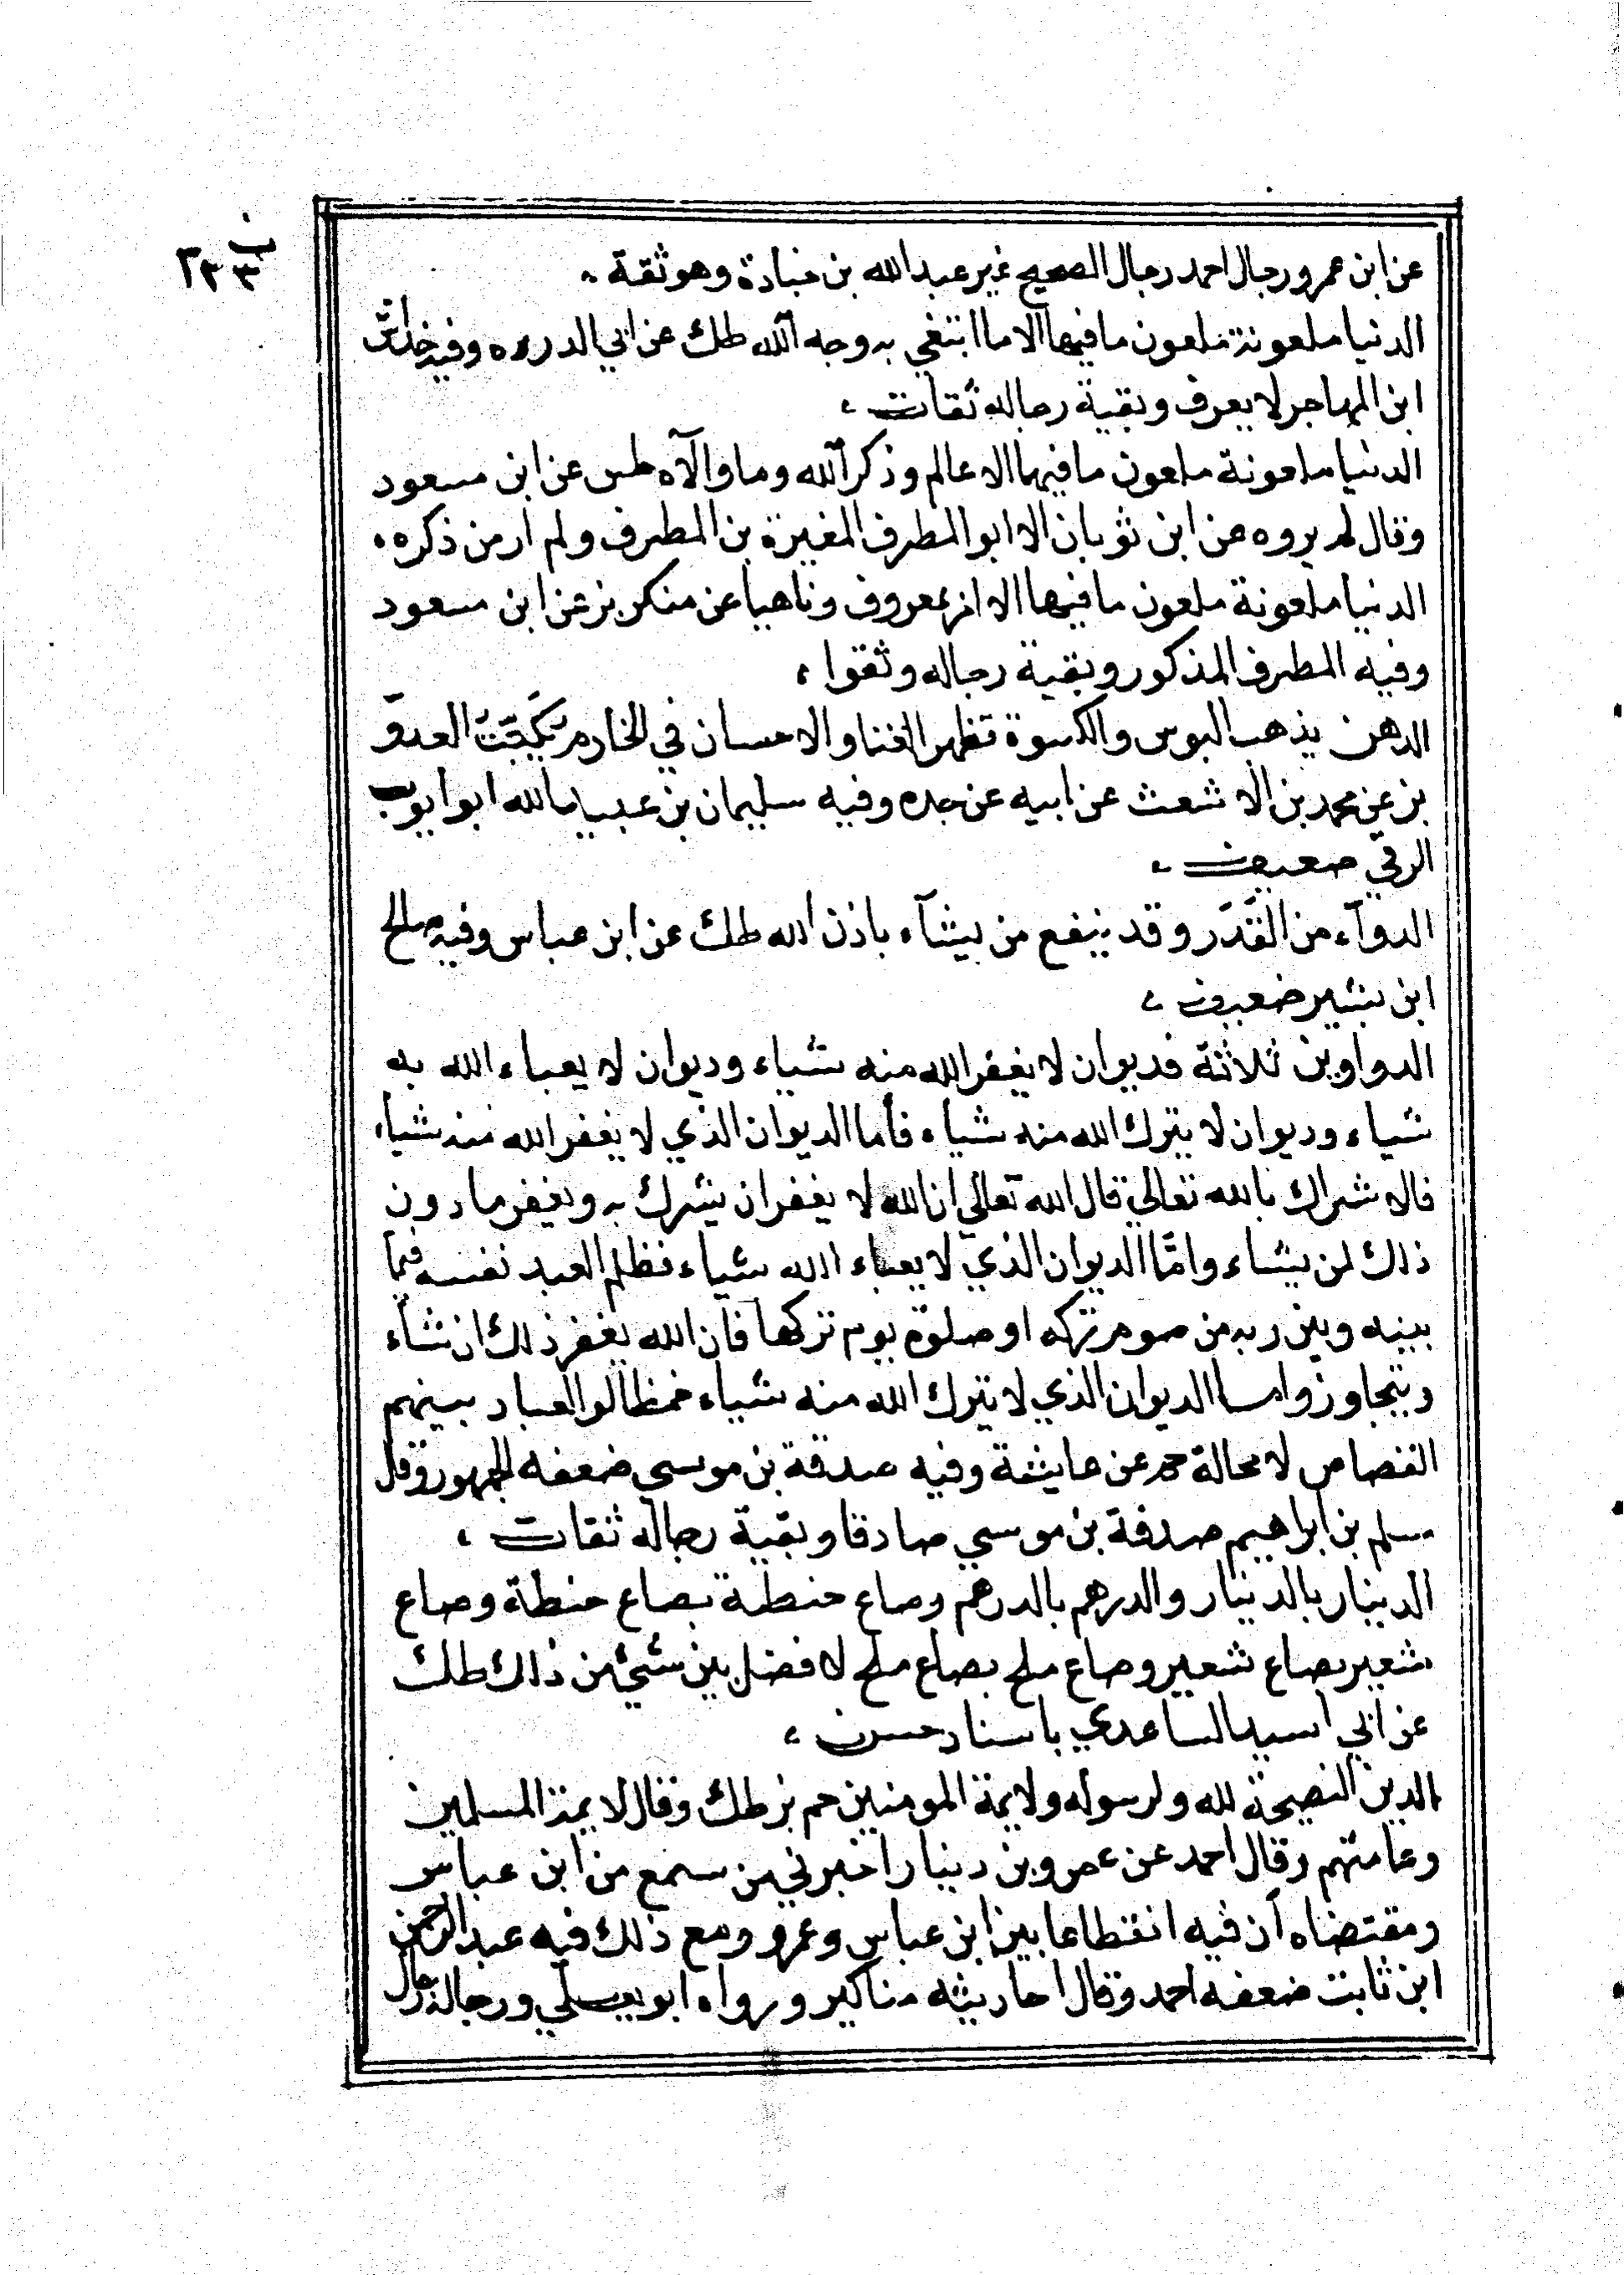 عن ابن عمرو رجال احمد رجال الصحيح غير عبدالله بن جنادة وهو ثقة
الدنيا ملعونة ملعون ما فيها الا ما ابتغي به وجه الله طك عن ابي الدرده وفيه خداش
ابن المهاجر لا يعرف وبقية رجاله ثقات
الدنيا ملعونة ملعون ما فيها الا عالم وذكر الله وما والاه طس عن ابن مسعود
وقال لم يروه عن ابن ثوبان الا ابو المطرف المغيرة بن المطرف ولم ار من ذكره
الدنيا ملعونة ملعون ما فيها الا امر بمعروف وناهيا عن منكر بز عن ابن مسعود
وفيه المطرف المذكور وبقية رجاله وثقوا
الدهن يذهب البوس والكسوة تظهر الغنا والاحسان في الخادم يكبت العدو
بز عن محمد بن الاشعث عن ابيه عن جده وفيه سليمان بن عبيد الله ابو ايوب
الرقي ضعيف
الدوآء من القدر وقد ينفع من يشآء باذن الله طك عن ابن عباس وفيه صالح
ابن بشير ضعيف
الدواوين ثلاثة فديوان لا يغفر الله منه شياء وديوان لا يعباء الله به
شياء وديوان لا يترك الله منه شياء فأما الديوان الذي لا يغفر الله منه شياء
فالاشراك بالله تعالي قال الله تعالي ان الله لا يغفر ان يشرك به ويغفر ما دون
ذلك لمن يشاء وامّا الديوان الذي لا يعباء الله شياء فظلم العبد نفسه فيما
بينه وبين ربه من صوم تركه او صلوة يوم تركها فان الله يغفر ذلك ان شآء
ويتجاوز واما الديوان الذي لا يترك الله منه شياء فمظالم العباد بينهم
القصاص لا محالة حم عن عايشة وفيه صدقة بن موسي ضعفه الجمهور وقال
مسلم بن ابراهيم صدقة بن موسي صادقا وبقية رجاله ثقات
الدينار بالدينار والدرهم بالدرهم وصاع حنطة بصاع حنطة وصاع
شعير بصاع شعير وصاع ملح بصاع ملح لا فضل بين شئ من ذلك طك
عن ابي اسيد الساعدي باسناد حسن
الدين النصيحة لله ولرسوله ولايمة المومنين حم بز طك وقال لايمة المسلمين
وعامتهم وقال احمد عن عمرو بن دينار اخبرني من سمع من ابن عباس
ومقتضاه ان فيه انقطاعا بين ابن عباس وعمرو ومع ذلك فيه عبد الرحمن
ابن ثابت ضعفه احمد وقال احاديثه مناكير ورواه ابو يعلي ورجاله رجال